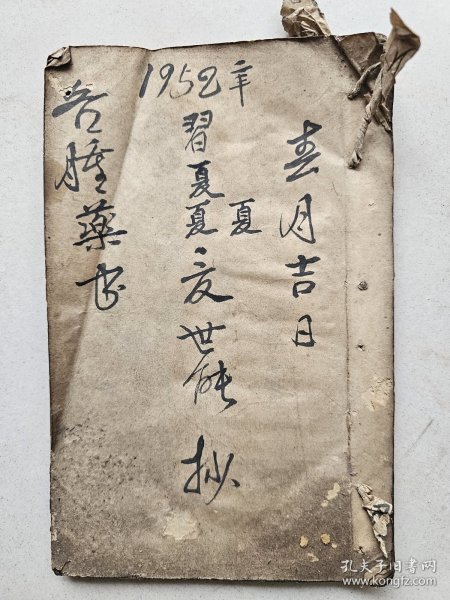 1952年
春月吉日
習夏夏
夏
受世能抄
各腫藥书
孔夫子旧书网
www.kongfz.com